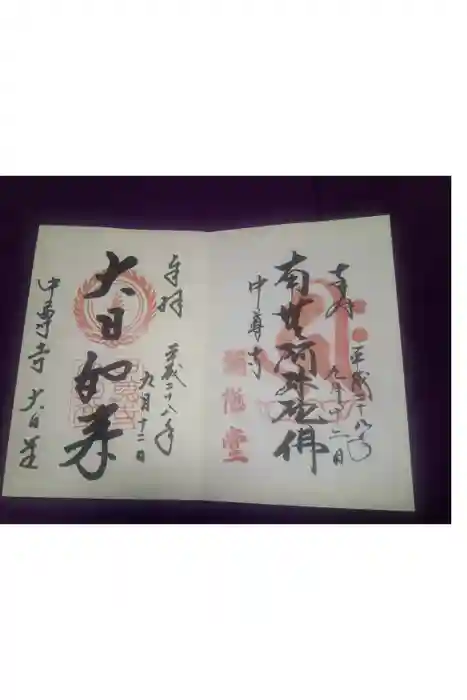 奉拝
平成二十八年
九月十二日
南无阿弥陀佛
中尊寺
奉拝
平成二十八年
九月十二日
大日如来
中尊寺 大日堂